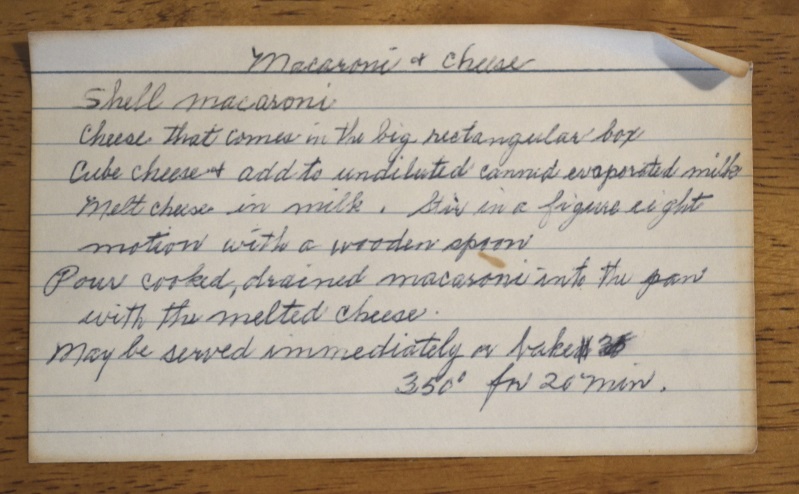 Macaroni & Cheese
Shell macaroni
Cheese that comes in the big rectangular box
Cube cheese & add to undiluted canned evaporated milk
Melt cheese in milk. Stir in a figure eight
motion with a wooden spoon
Pour cooked, drained macaroni into the pan
with the melted cheese.
May be served immediately or baked
350° for 20 min.